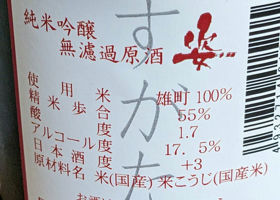 純米吟醸
無濾過原酒
姿
すがた
使用米 雄町100%
精米歩合 55%
酸度 1.7
アルコール度 17.5%
日本酒度 +3
原材料名 米(国産)米こうじ(国産米)